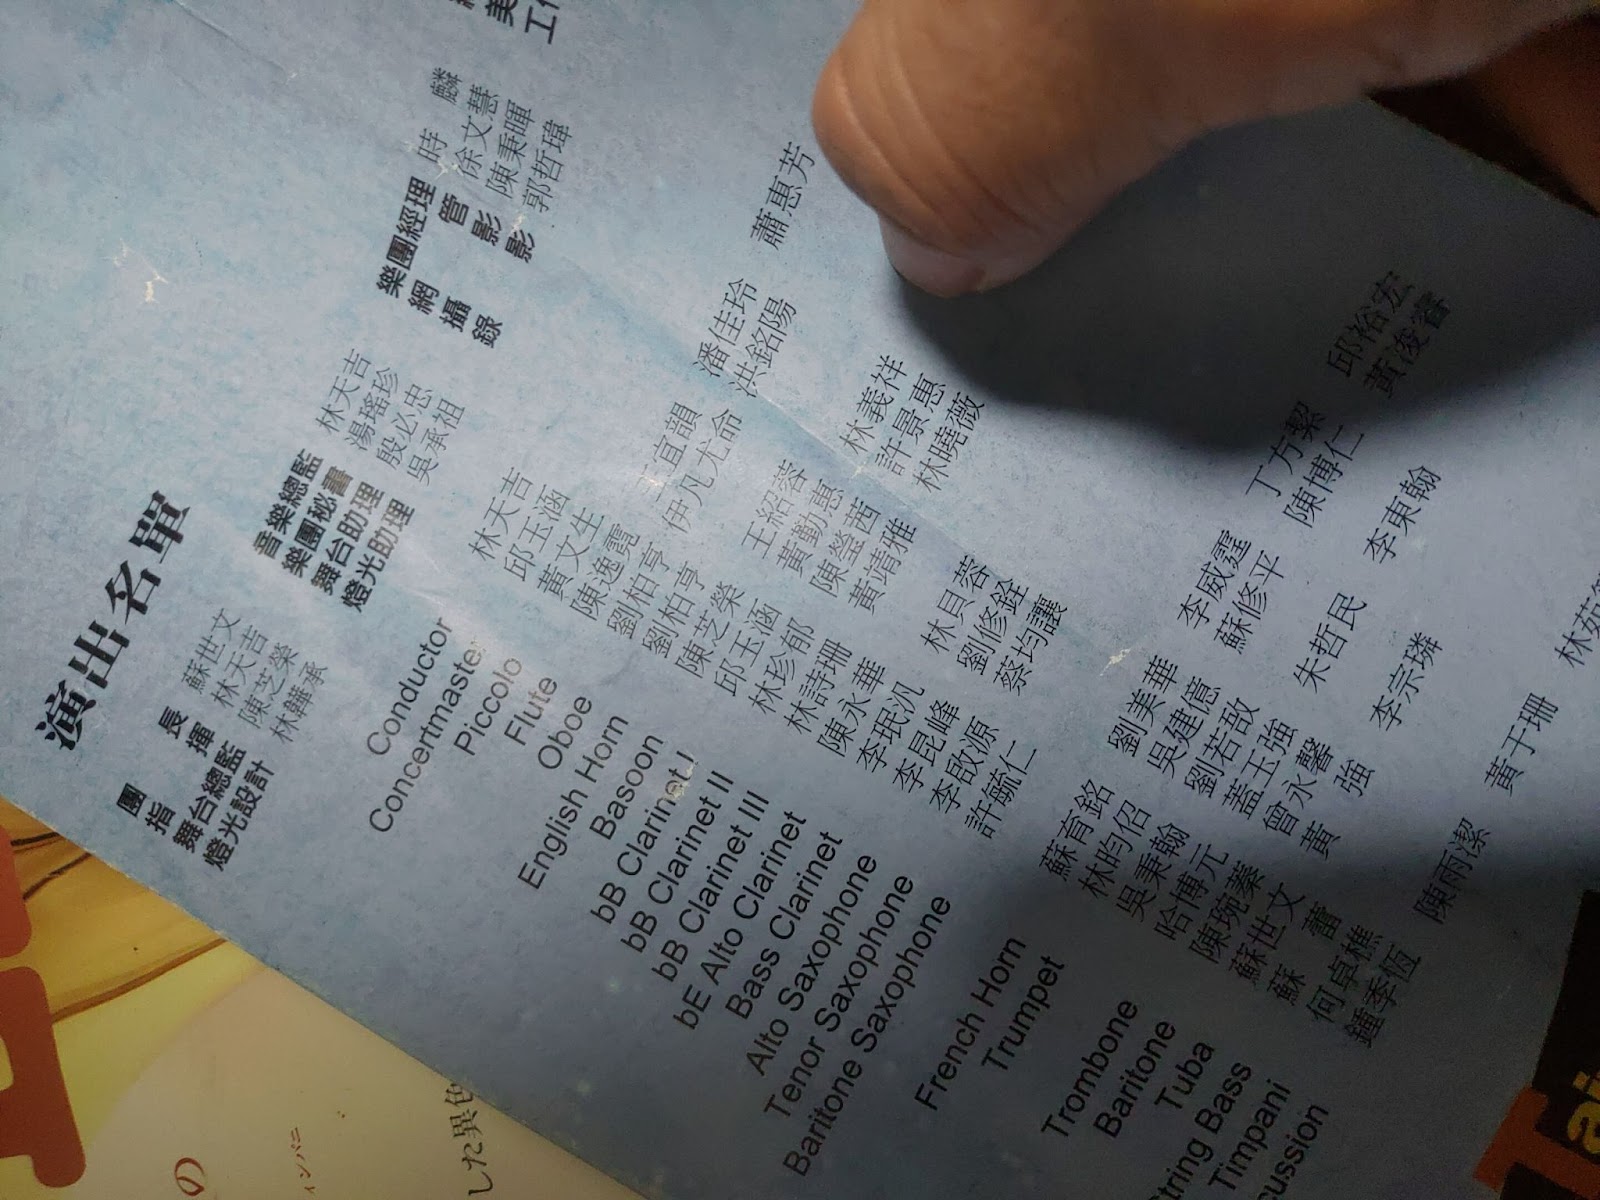 演出名單
團 長 蘇世文 音樂總監 林天吉 樂團經理 時 麟
指 揮 林天吉 樂團秘書 湯瑤珍 網 管 徐文慧
舞台總監 陳芝榮 舞台助理 殷必忠 攝 影 陳秉暉
燈光設計 林韡承 燈光助理 吳承祖 錄 影 郭哲瑋
美
工
Conductor 林天吉
Concertmaster 邱玉涵
Piccolo 黃文生
Flute 陳逸霓 王宜韻 潘佳玲 蕭惠芳
Oboe 劉柏亨 伊凡尤命 洪銘陽
English Horn 劉柏亨
Basoon 陳芝榮
bB Clarinet I 邱玉涵 王紹蓉 林義祥
bB Clarinet II 林珍郁 黃勳惠 許景惠
bB Clarinet III 林詩珊 陳瑩茜 林曉薇
bE Alto Clarinet 陳永華 黃靖雅
Bass Clarinet 李珉汎
Alto Saxophone 李昆峰 林貝蓉
Tenor Saxophone 李啟源 劉修銓
Baritone Saxophone 許毓仁 蔡均讓
French Horn 蘇育銘 劉美華 李威霆 丁方絜 邱裕宏
Trumpet 林昀佋 吳建億 蘇修平 陳博仁 黃浚睿
吳秉翰 劉若敔
Trombone 哈博元 蓋玉強 朱哲民 李東翰
Baritone 陳琬蓁 曾永馨
Tuba 蘇世文 黃 強 李宗璘
String Bass 蘇 蕾
Timpani 何卓樵
cussion 鍾季恆 陳雨潔 黃于珊 林茹
の
した異色